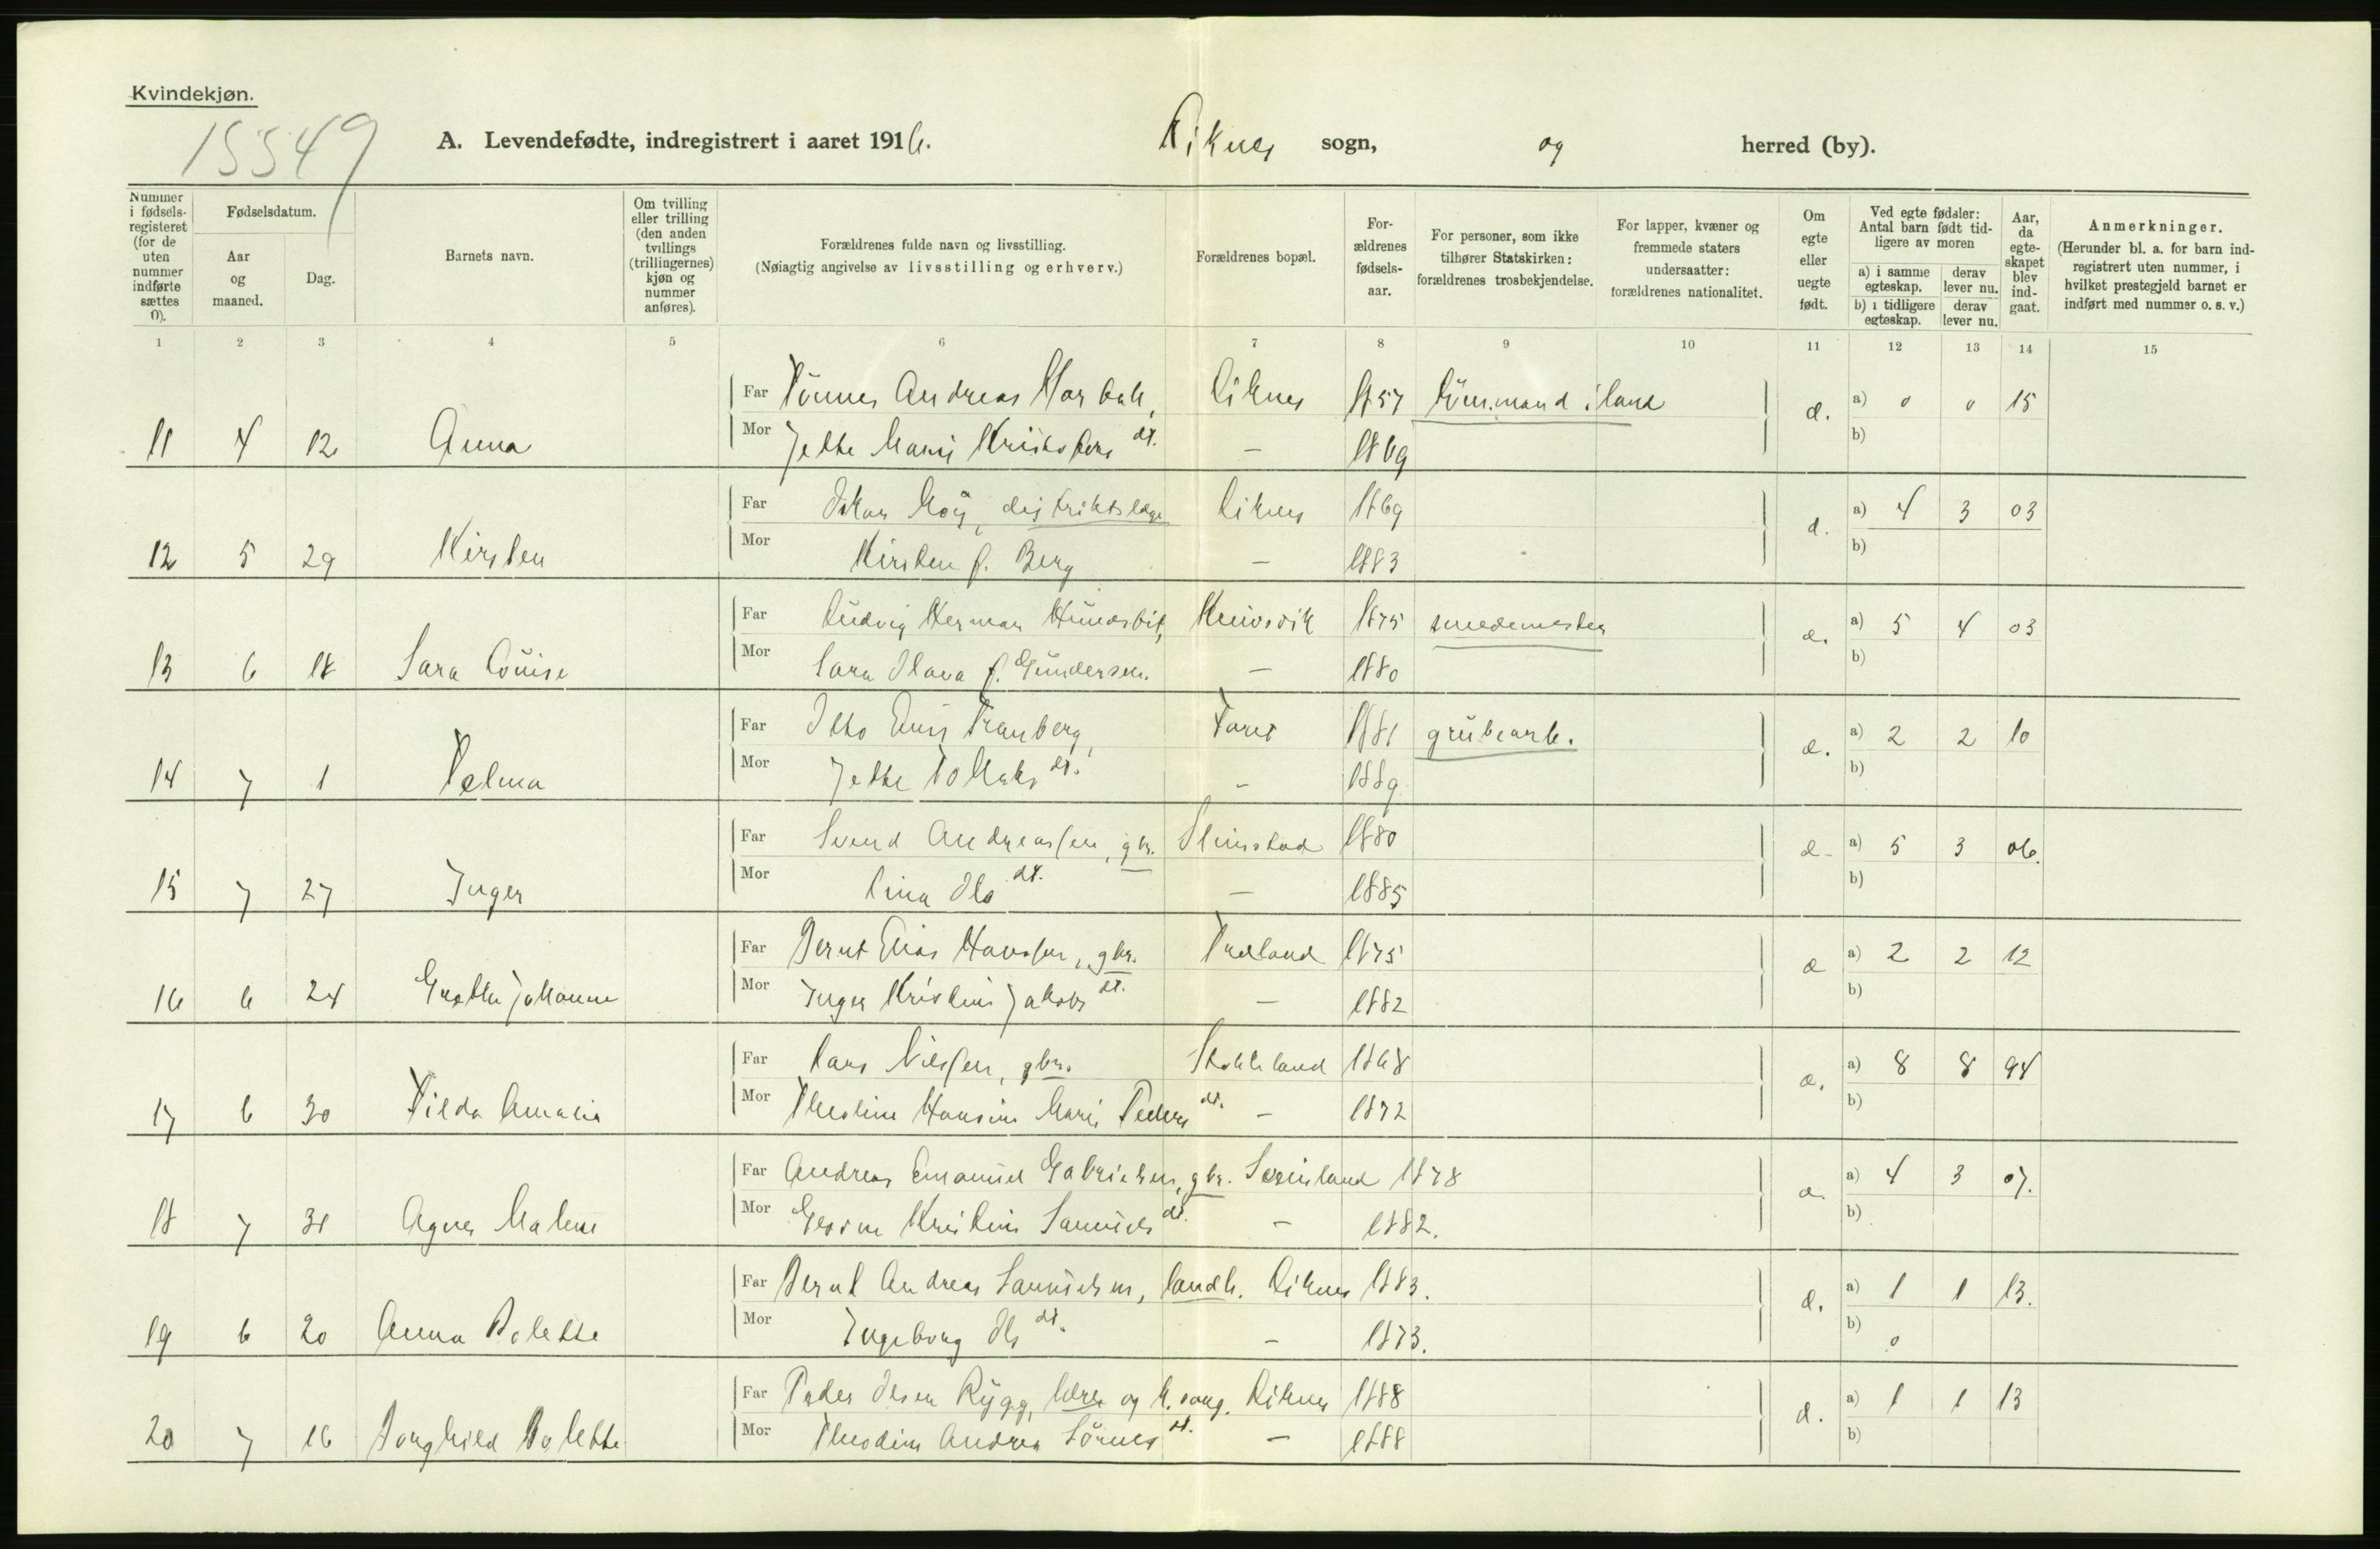 Kvindekjøn.
15549
A. Levendefødte, indregistrert i aaret 1916. Liknes sogn, og herred (by).
Nummer i fødselsregisteret (for de uten nummer indførte sættes 0).
Fødselsdatum.
Aar og maaned.
Dag.
Barnets navn.
Om tvilling eller trilling (den anden tvillings (trillingernes) kjøn og nummer anføres).
Forældrenes fulde navn og livsstilling.
(Nøiagtig angivelse av livsstilling og erhverv.)
Forældrenes bopæl.
Forældrenes fødselsaar.
For personer, som ikke tilhører Statskirken: forældrenes trosbekjendelse.
For lapper, kvæner og fremmede staters undersaatter: forældrenes nationalitet.
Om egte eller uegte født.
Ved egte fødsler: Antal barn født tidligere av moren
a) i samme egteskap. derav lever nu.
b) i tidligere egteskap. derav lever nu.
Aar, da egteskapet blev indgaat.
Anmerkninger.
(Herunder bl. a. for barn indregistrert uten nummer, i hvilket prestegjeld barnet er indført med nummer o. s. v.)
1 2 3 4 5 6 7 8 9 10 11 12 13 14 15
Far Tönnes Andreas Liknes 1857 land a) 0 0 15
11 4 12 Anna Mor Jette Marie dt. — 1869 b)
Far Oskar distriktslæge Liknes 1869 a) 4 3 03
12 5 29 Kirsten Mor Kirsten f. Berg — 1883 b)
Far Ludvig Herman Kvinesvik 1875 smedemester a) 5 4 03
13 6 18 Sara Louise Mor Sara Olava f. Gundersen. — 1880 b)
Far Otto 1881 grubearb. a) 2 2 10
14 7 1 Mor Jette dt. — 1889 b)
Far Svend Andreassen, gbr. 1880 a) 5 3 06.
15 7 27 Inger Mor Lina Ols dt. — 1885 b)
Far Bernt Elias Hanssen, gbr. 1875 a) 2 2 12
16 6 24 Johanne Mor Inger Kristine Jakobs dt. — 1882 b)
Far Lars Nilssen, gbr. 1868 a) 8 8 94
17 6 30 Tilda Amalia Mor Hansine Marie Peders dt. — 1872 b)
Far Andreas Emanuel Gabrielsen, gbr. 1878 a) 4 3 07.
18 7 31 Agnes Malene Mor Kristine Samuels dt. — 1882. b)
Far Bernt Andreas Samuelsen, landh. Liknes 1883. a) 1 1 13.
19 6 20 Anna Bolette Mor Ingeborg Ols dt. — 1873. b) 0
Far Peder Olsen Rygg, lærer og k. sang. Liknes 1888 a) 1 1 13
20 7 16 Borghild Bolette Mor Andrea dt. — 1888 b)